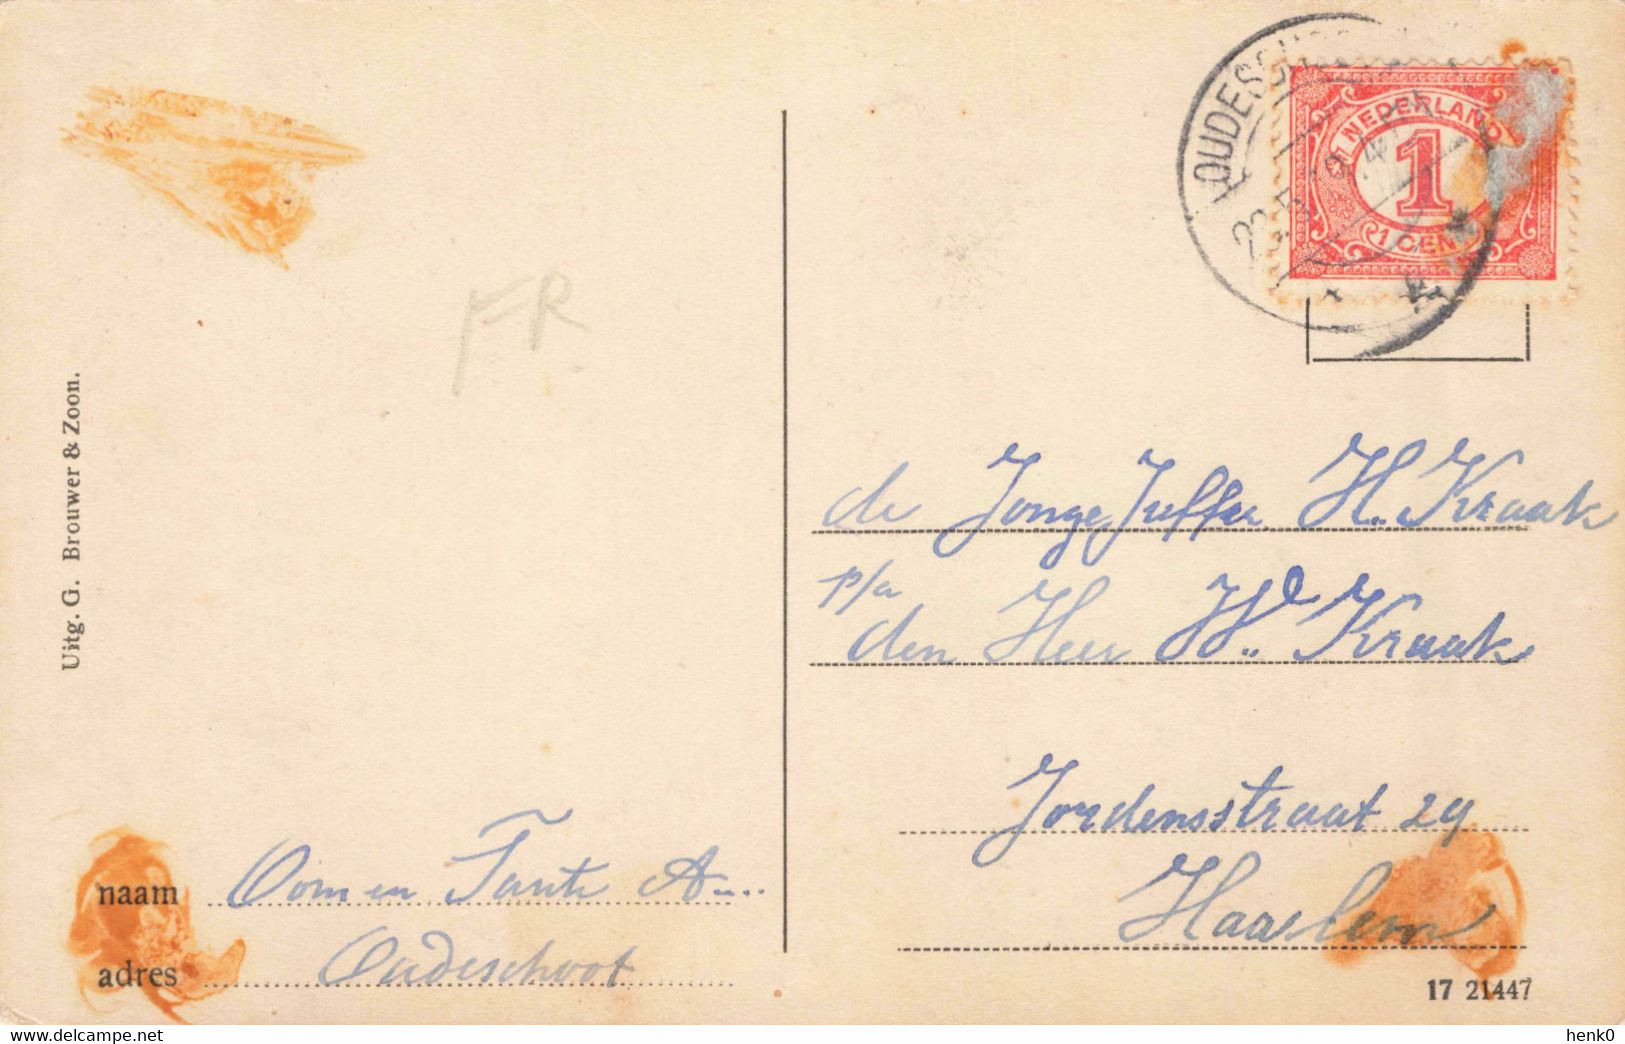 OUDESCHOOT
1 NEDERLAND 1
1
1 CENT
FR
Uitg. G. Brouwer & Zoon.
de Jonge Juffer H. Kraak
p/a
den Heer W. Kraak
Jordensstraat 29
Haarlem
naam Oom en Tante A....
adres Oudeschoot
17 21447
www.delcampe.net
henk0